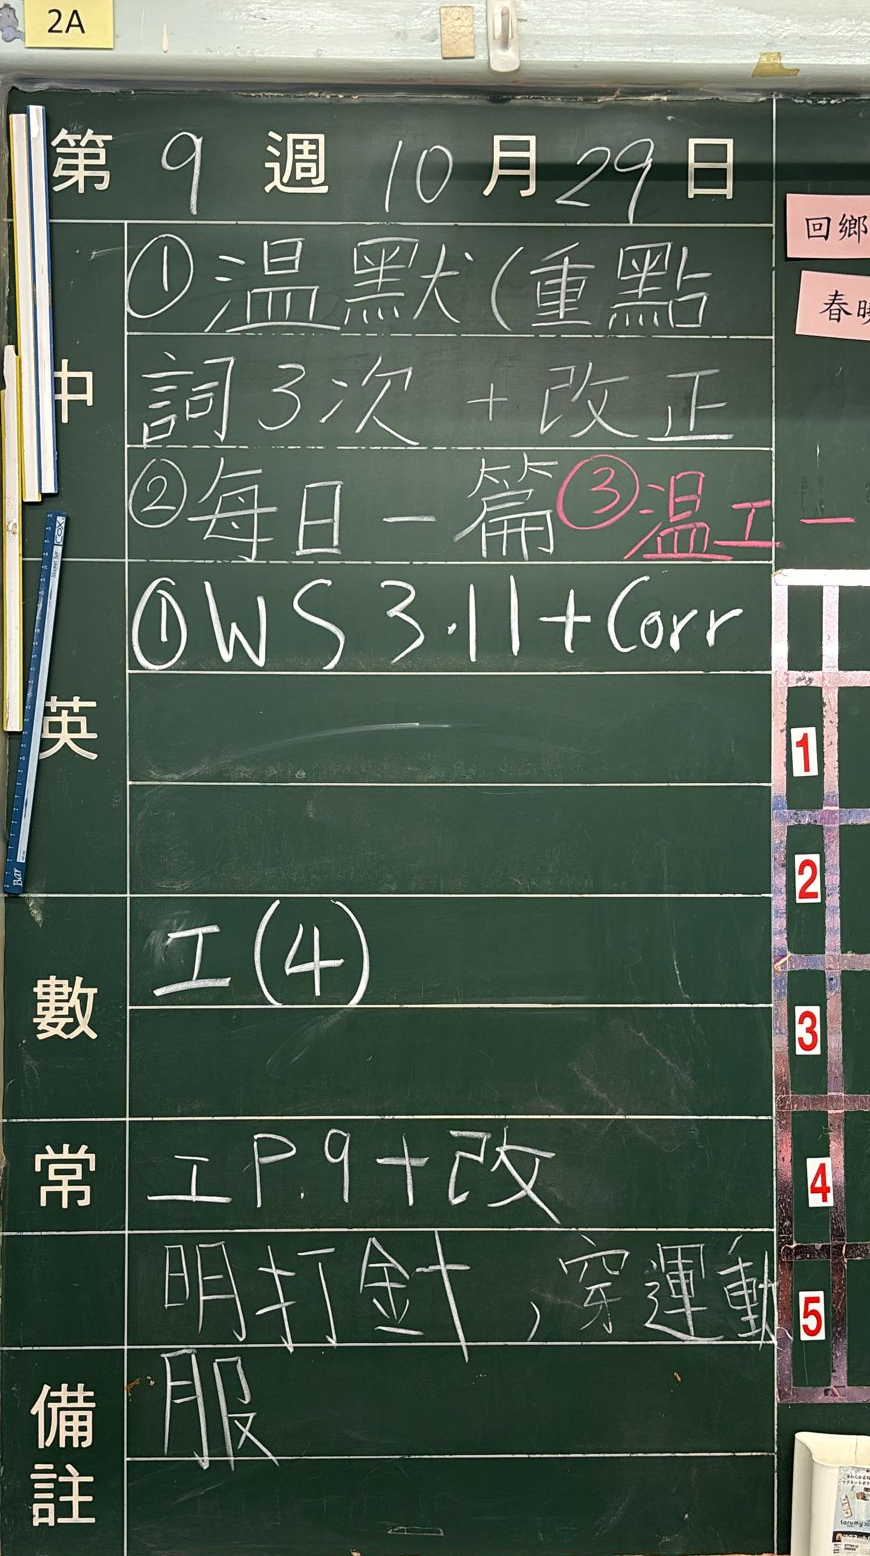 2A
第 9 週 10 月 29 日
回鄉
春曉
中
①温默(重點
詞3次 + 改正
②每日一篇③温工一
英
①WS 3.11+Corr
1
2
數
工(4)
3
常
工 P.9+改
4
明打針,穿運動
5
備註
服
Bar